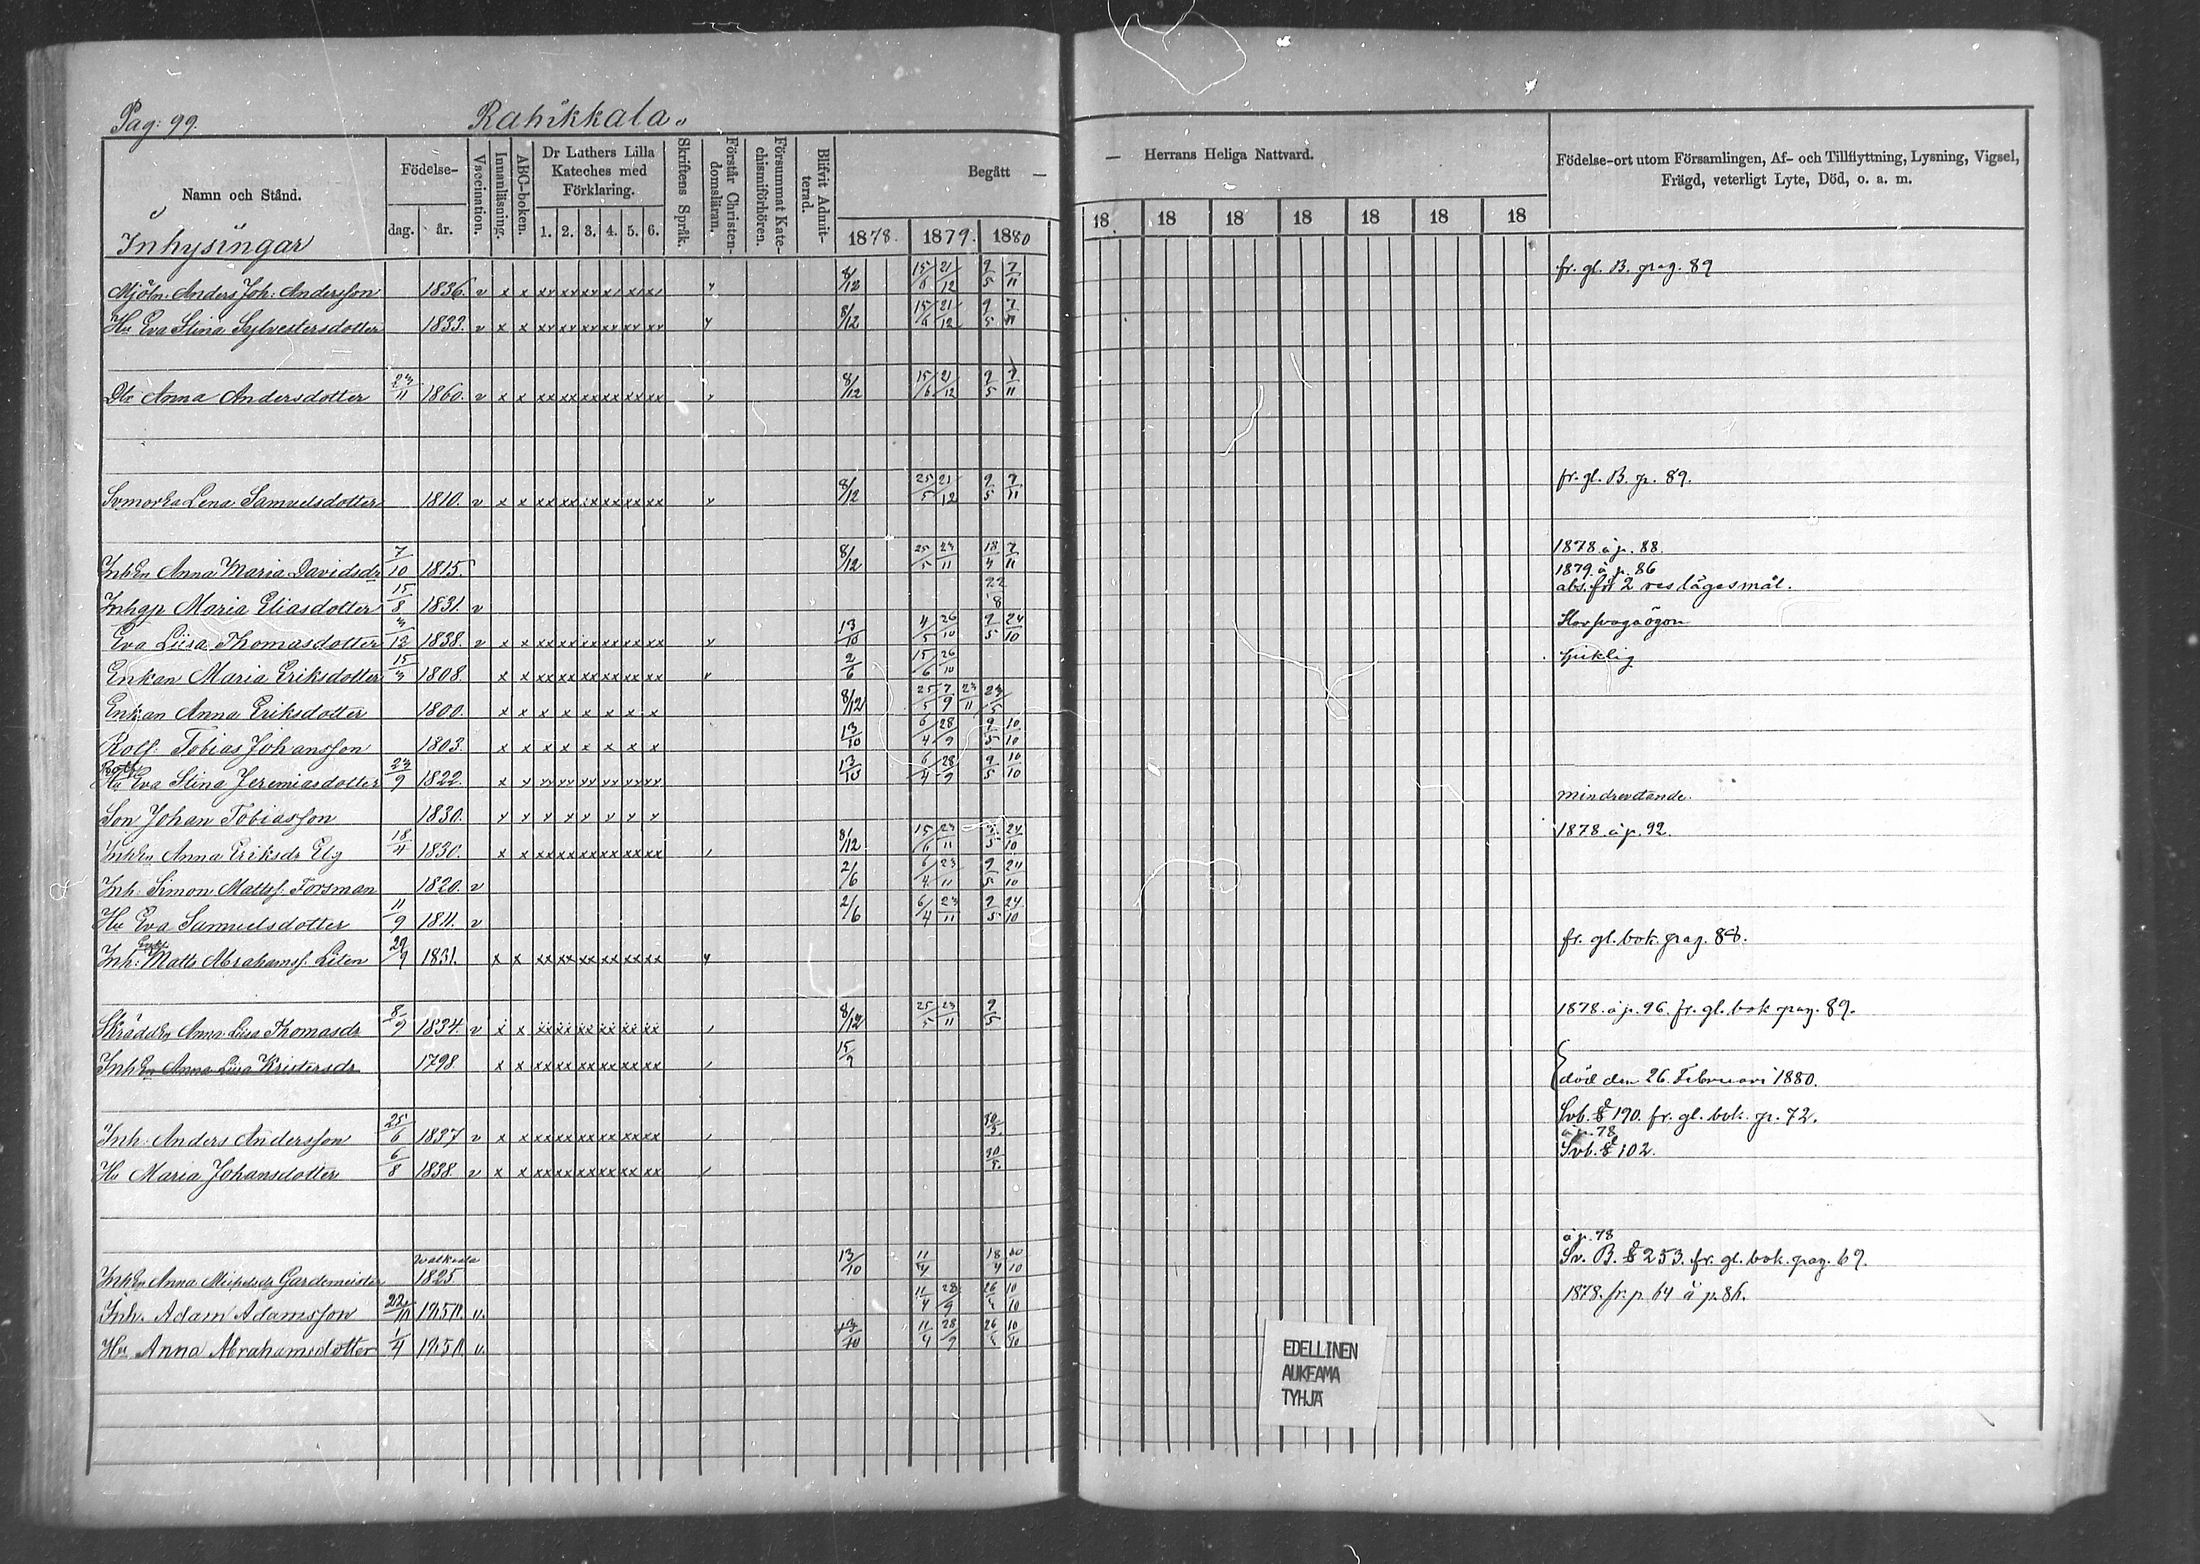 Pag: 99. Rahikkala.
Namn och Stånd. Födelse- dag. år. Vaccination. Innanläsning. ABC-boken. Dr Luthers Lilla Kateches med Förklaring. 1. 2. 3. 4. 5. 6. Skriftens Språk. Förstår Christendomsläran. Försummat Katechismiförhören. Blifvit Admitterad. Begått — 1878. 1879. 1880
— Herrans Heliga Nattvard. 18 18 18 18 18 18 18
Födelse-ort utom Församlingen, Af- och Tillflyttning, Lysning, Vigsel,
Frägd, veterligt Lyte, Död, o. a. m.
Inhysingar
Mjöln: Anders Joh: Andersson 1836. v x x xx xx xx xx xx xx 8/12 15/6 21/12 9/5 7/11 fr. gl. B. pag. 89
Hu Eva Stina Sylvestersdotter 1833. v x x xx xx xx xx xx xx 8/12 15/6 21/12 9/5 7/11
Dtr Anna Andersdotter 23/11 1860. v x x xx xx xx xx xx xx 8/12 15/6 21/12 9/5 7/11
Lena Samuelsdotter 1810. v x x xx xx xx xx xx xx 8/12 25/5 21/12 9/5 7/11 fr. gl. B. p. 89.
InhEn Anna Maria Davidsdr 7/10 1815. 8/12 25/5 23/11 18/4 7/11 1878 à p. 88.
1879 à p. 86
Inhgp Maria Eliasdotter 15/8 1831. v 22/8 abs. för 2 res lägersmål.
Eva Liisa Thomasdotter 3/12 1838. v x x xx xx xx xx xx xx 13/10 4/5 26/10 9/5 24/10
Enkan Maria Eriksdotter 15/3 1808. x x xx xx xx xx xx xx 2/6 15/6 26/10 sjuklig
Enkan Anna Eriksdotter 1800. x x x x x x x x 8/12 25/5 7/9 23/11 23/5
Rotf: Tobias Johansson 1803. x x x x x x x x 13/10 6/4 28/9 9/5 10/10
Rotf
Hu Eva Stina Jeremiasdotter 23/9 1822. x x xx xx xx xx xx xx 13/10 6/4 28/9 9/5 10/10
Son Johan Tobiasson 1830. x x x x x x x x mindrevetande.
InhEn Anna Eriksdr Elg 18/4 1830. x x xx xx xx xx xx xx 8/12 15/6 23/11 24/10 1878. à p. 92.
Inh: Simon Mattsf. Forsman 1820. v 2/6 6/4 23/11 9/5 24/10
Hu Eva Samuelsdotter 11/9 1811. v 2/6 6/4 23/11 9/5 24/10
Inh: Matts Abrahamsf. Liten 29/9 1831. x x xx xx xx xx xx xx fr. gl. bok. pag. 88.
Anna Liisa Thomasdr 8/9 1834. v x x xx xx xx xx xx xx 8/12 25/5 23/11 9/5 1878. à p. 96. fr. gl. bok pag. 89.
InhEn Anna Liisa Kristersdr 1798. x x xx xx xx xx xx xx 15/9 död den 26. Februari 1880.
Inh: Anders Andersson 25/6 1837 v x x xx xx xx xx xx xx 30/5. Svb. 190. fr. gl. bok. p. 72.
à p. 78
Hu Maria Johansdotter 6/8 1838. v x x xx xx xx xx xx xx 30/5. Svb. 102.
à p. 78
InhEn Anna Michelsdr Gardemeister Walkeala 1825 13/10 11/4 18/4 10/10 Sv. B. 253. fr. gl. bok. pag. 67.
Inh. Adam Adamsson 22/10 v. 11/4 28/9 26/ 10/10 1878. fr. p. 64 à p. 86.
Hu Anna Abrahamsdotter 1/4 v. 13/10 11/4 28/9 26/ 10/10
EDELLINEN
AUKEAMA
TYHJÄ